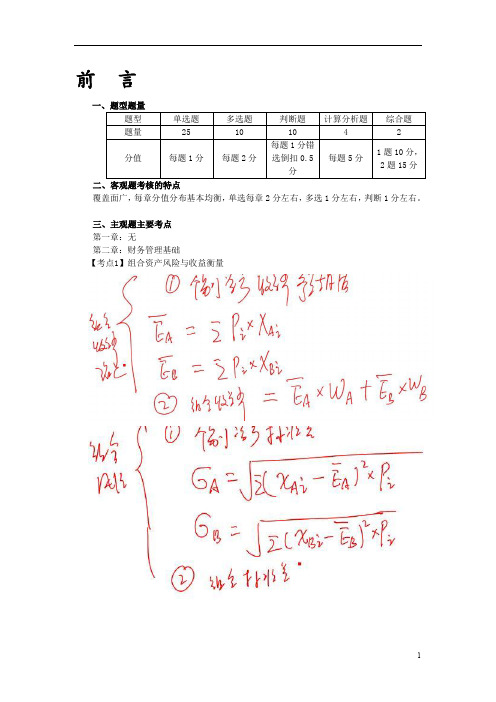 前 言
一、题型题量
题型 单选题 多选题 判断题 计算分析题 综合题
题量 25 10 10 4 2
分值 每题1分 每题2分 每题1分错选倒扣0.5分 每题5分 1题10分，2题15分
二、客观题考核的特点
覆盖面广，每章分值分布基本均衡，单选每章2分左右，多选1分左右，判断1分左右。
三、主观题主要考点
第一章：无
第二章：财务管理基础
【考点1】组合资产风险与收益衡量
组合
收益
① 个别资产收益率
E̅A = ΣPi×XAi
E̅B = ΣPi×XBi
② 组合收益率 = E̅A×WA+E̅B×WB
组合
风险
① 个别资产标准差
σA=√Σ(XAi−E̅A)²×Pi
σB=√Σ(XBi−E̅B)²×Pi
② 组合标准差
1